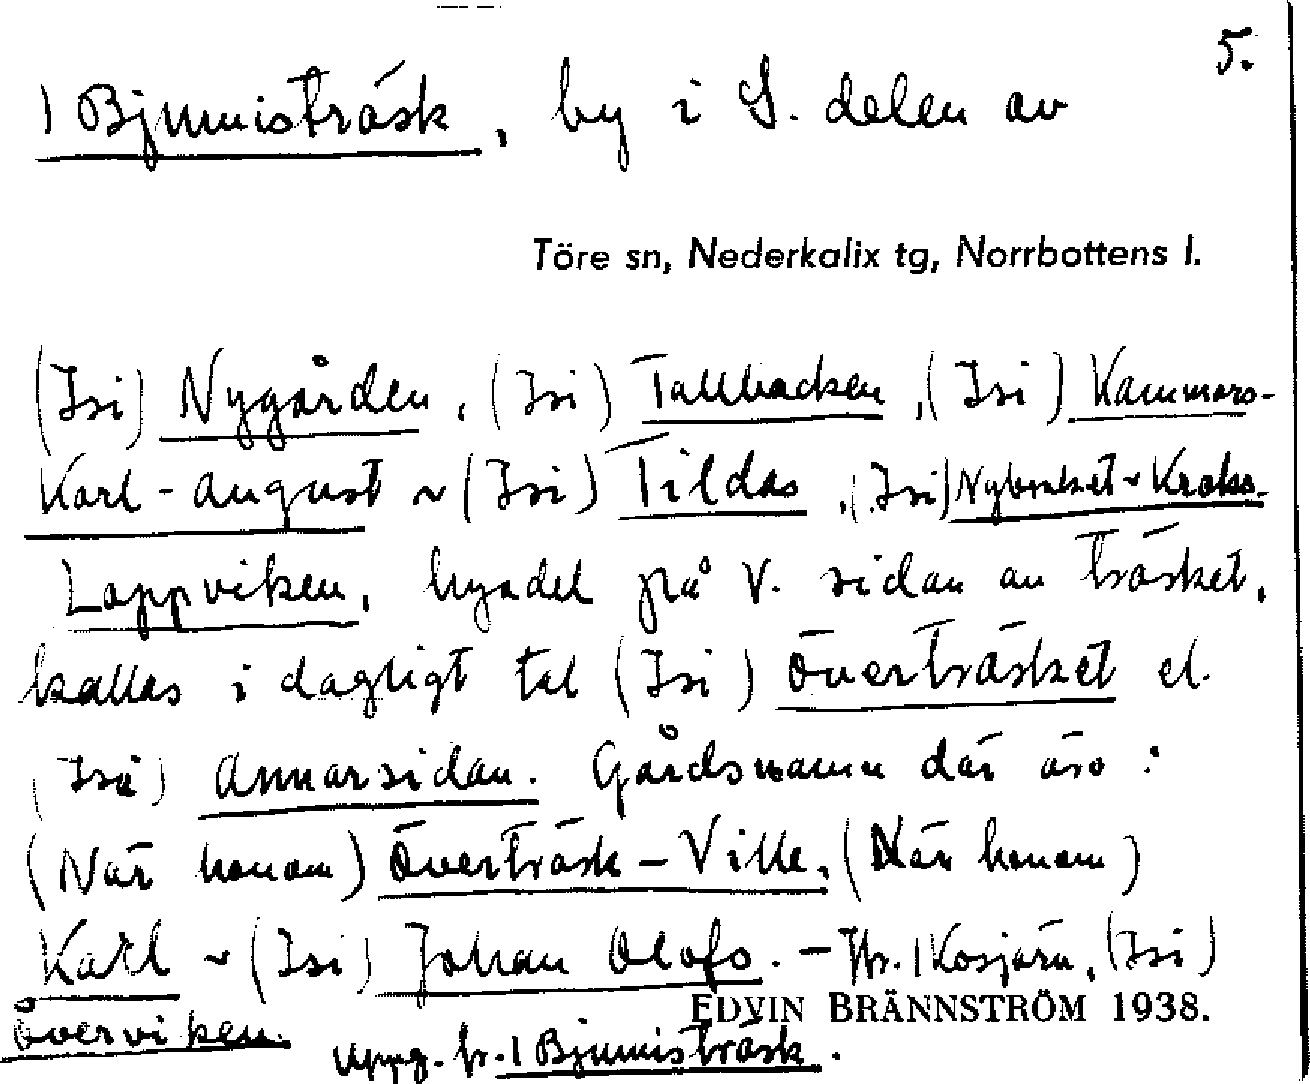 5.
1 Bjumisträsk, by i S. delen av
Töre sn, Nederkalix tg, Norrbottens l.
(Isi) Nygården, (Isi) Tallbacken, (Isi) Kammars-
Karl-August ~ (Isi) Tildas, (Isi) Nybruket ~ Kroks.
Lappviken, byadel på V. sidan av träsket,
kallas i dagligt tal (Isi) Överträsket el.
(Isi) Annarsidan. Gårdsnamn där äro:
(När honom) Överträsk-Ville, (När honom)
Karl ~ (Isi) Johan Olofs. - Jfr. 1 Kosjärn, (Isi)
EDVIN BRÄNNSTRÖM 1938.
Överviken. Uppg. fr. 1 Bjumisträsk.